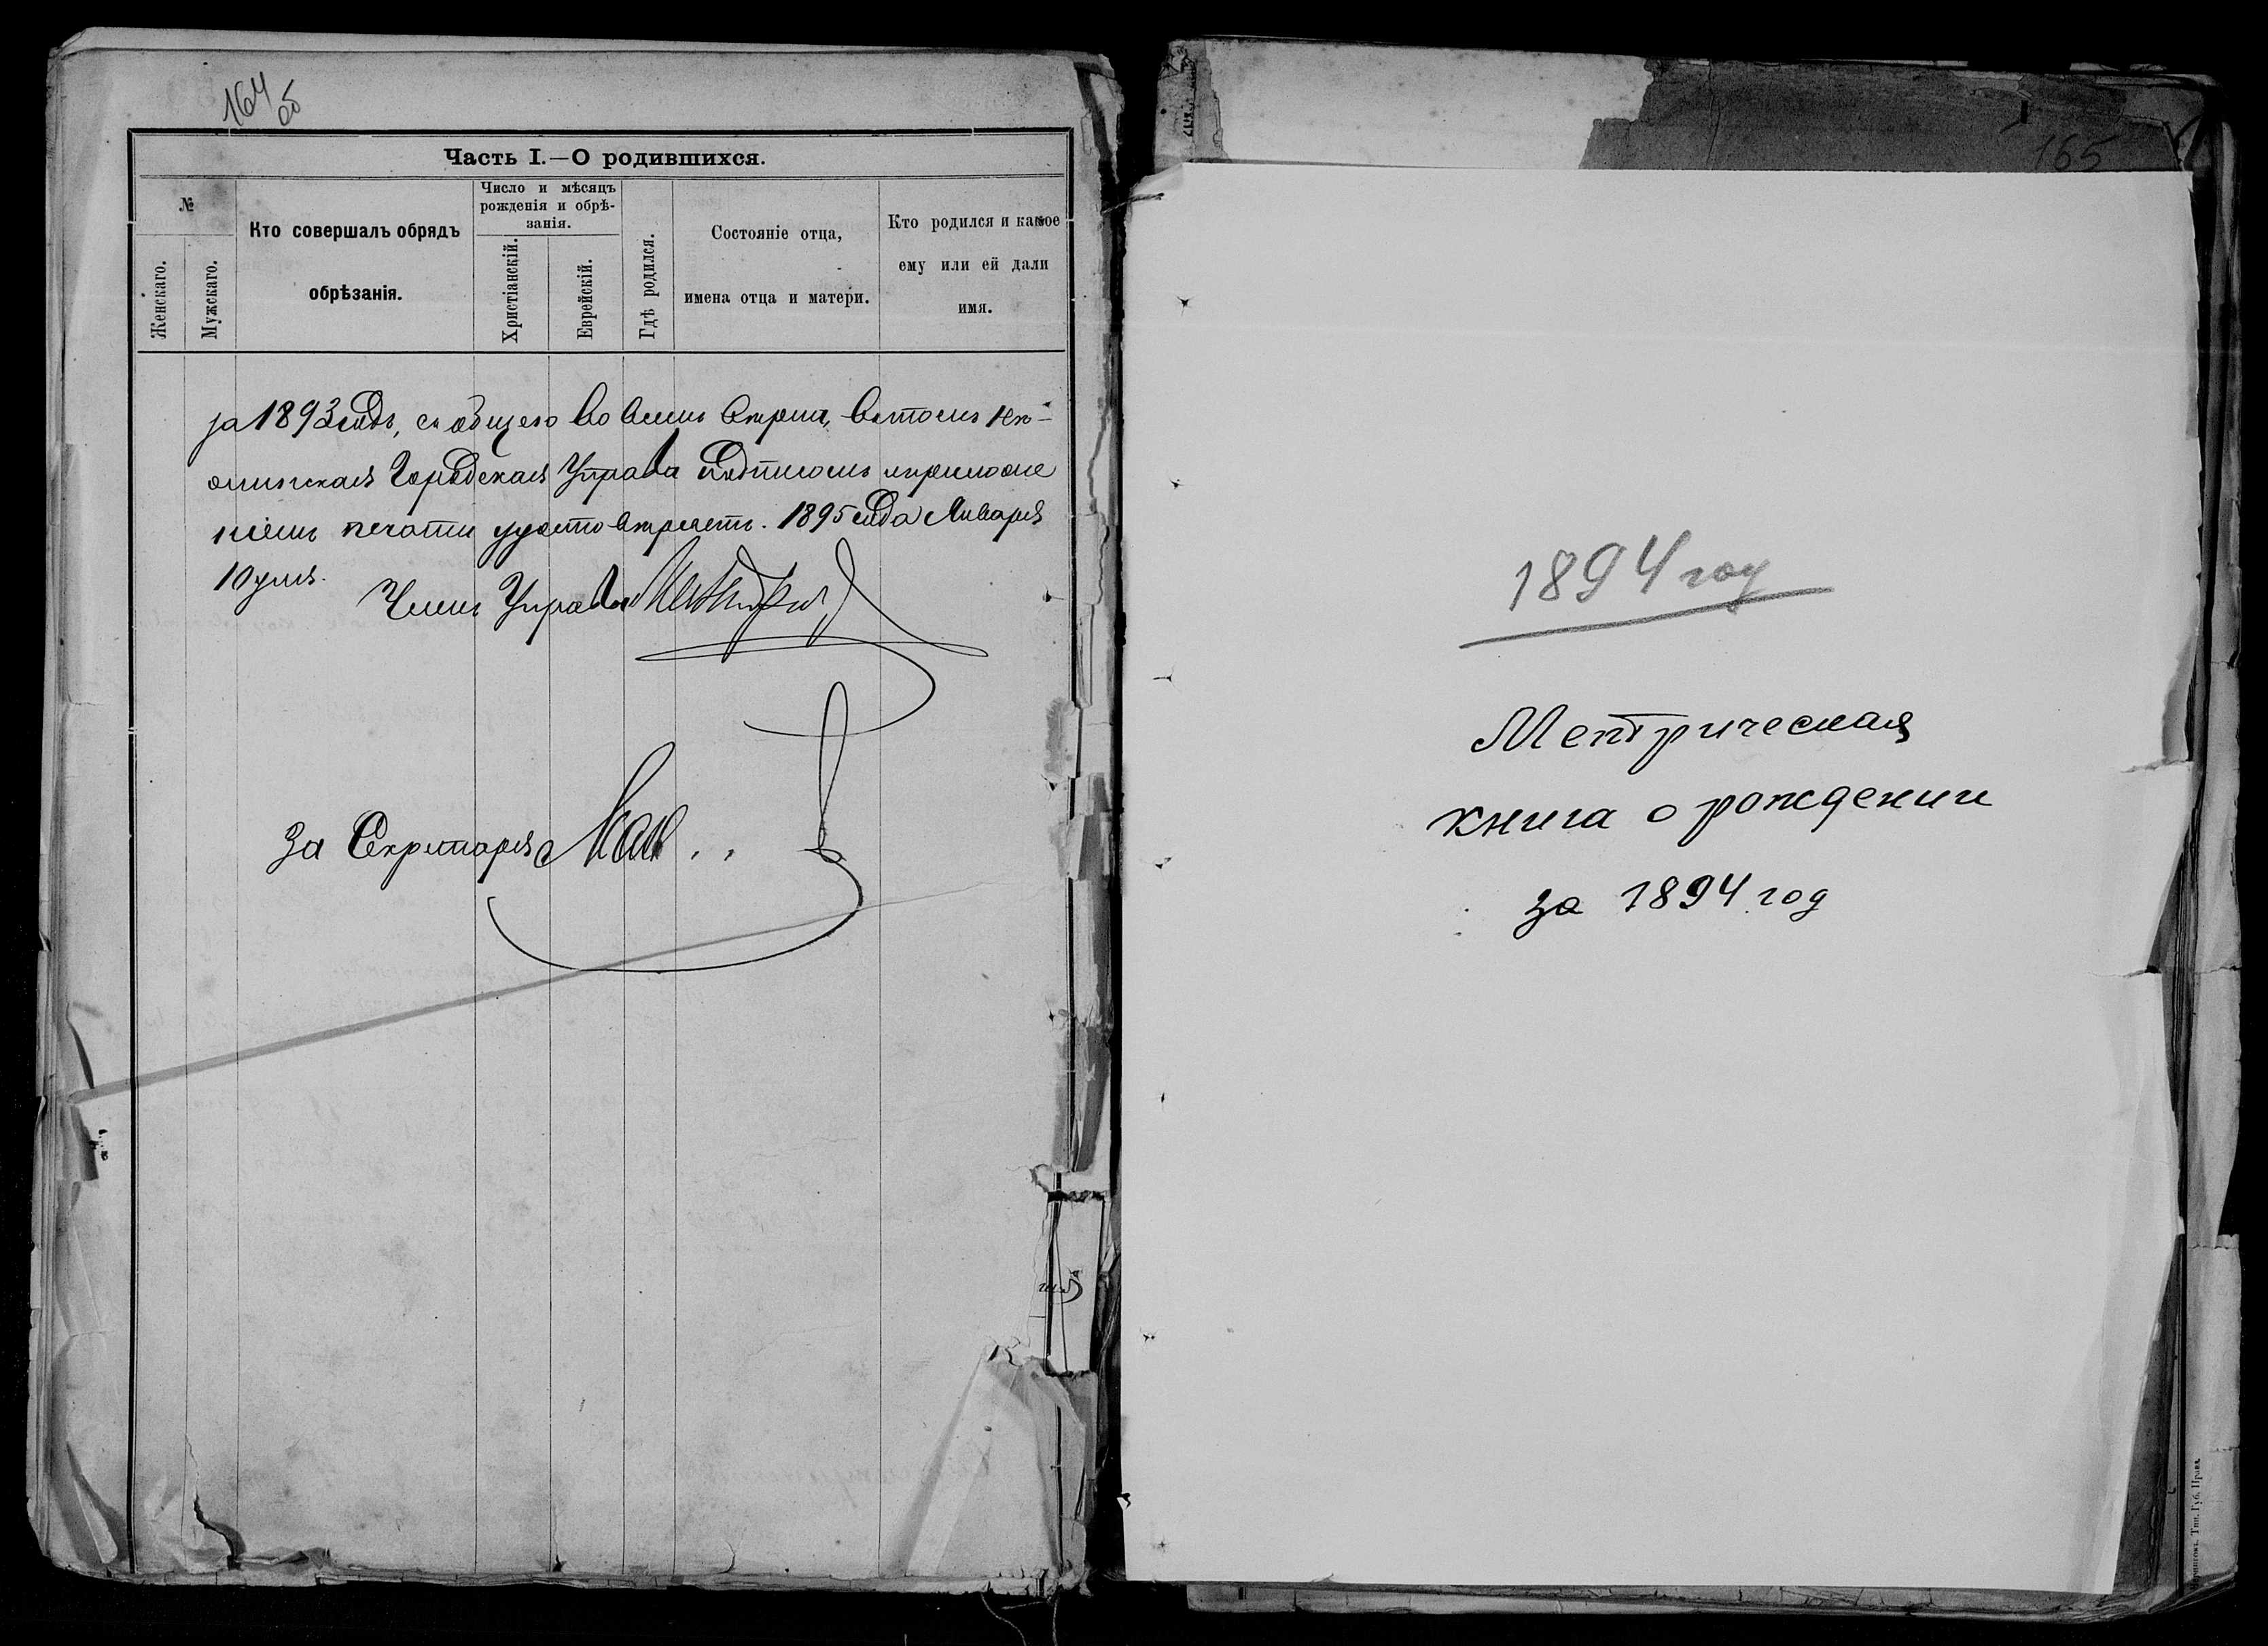 164 об
Часть I.—О родившихся.
№
Женскаго.
Мужскаго.
Кто совершалъ обрядъ
обрѣзанія.
Число и мѣсяцъ
рожденія и обрѣ-
занія.
Христіанскій.
Еврейскій.
Гдѣ родился.
Состояніе отца,
имена отца и матери.
Кто родился и какое
ему или ей дали
имя.
за 1893 годъ, сообщею во всемъ вѣрна, въ томъ
Городская Управа подписомъ и приложе
ніемъ печати удостовѣряетъ. 1895 года Января
10 дня.
Членъ Управы
За Секретаря
165
1894 год
Метрическая
книга о рождении
за 1894 год
Тип. Губ. Прав.